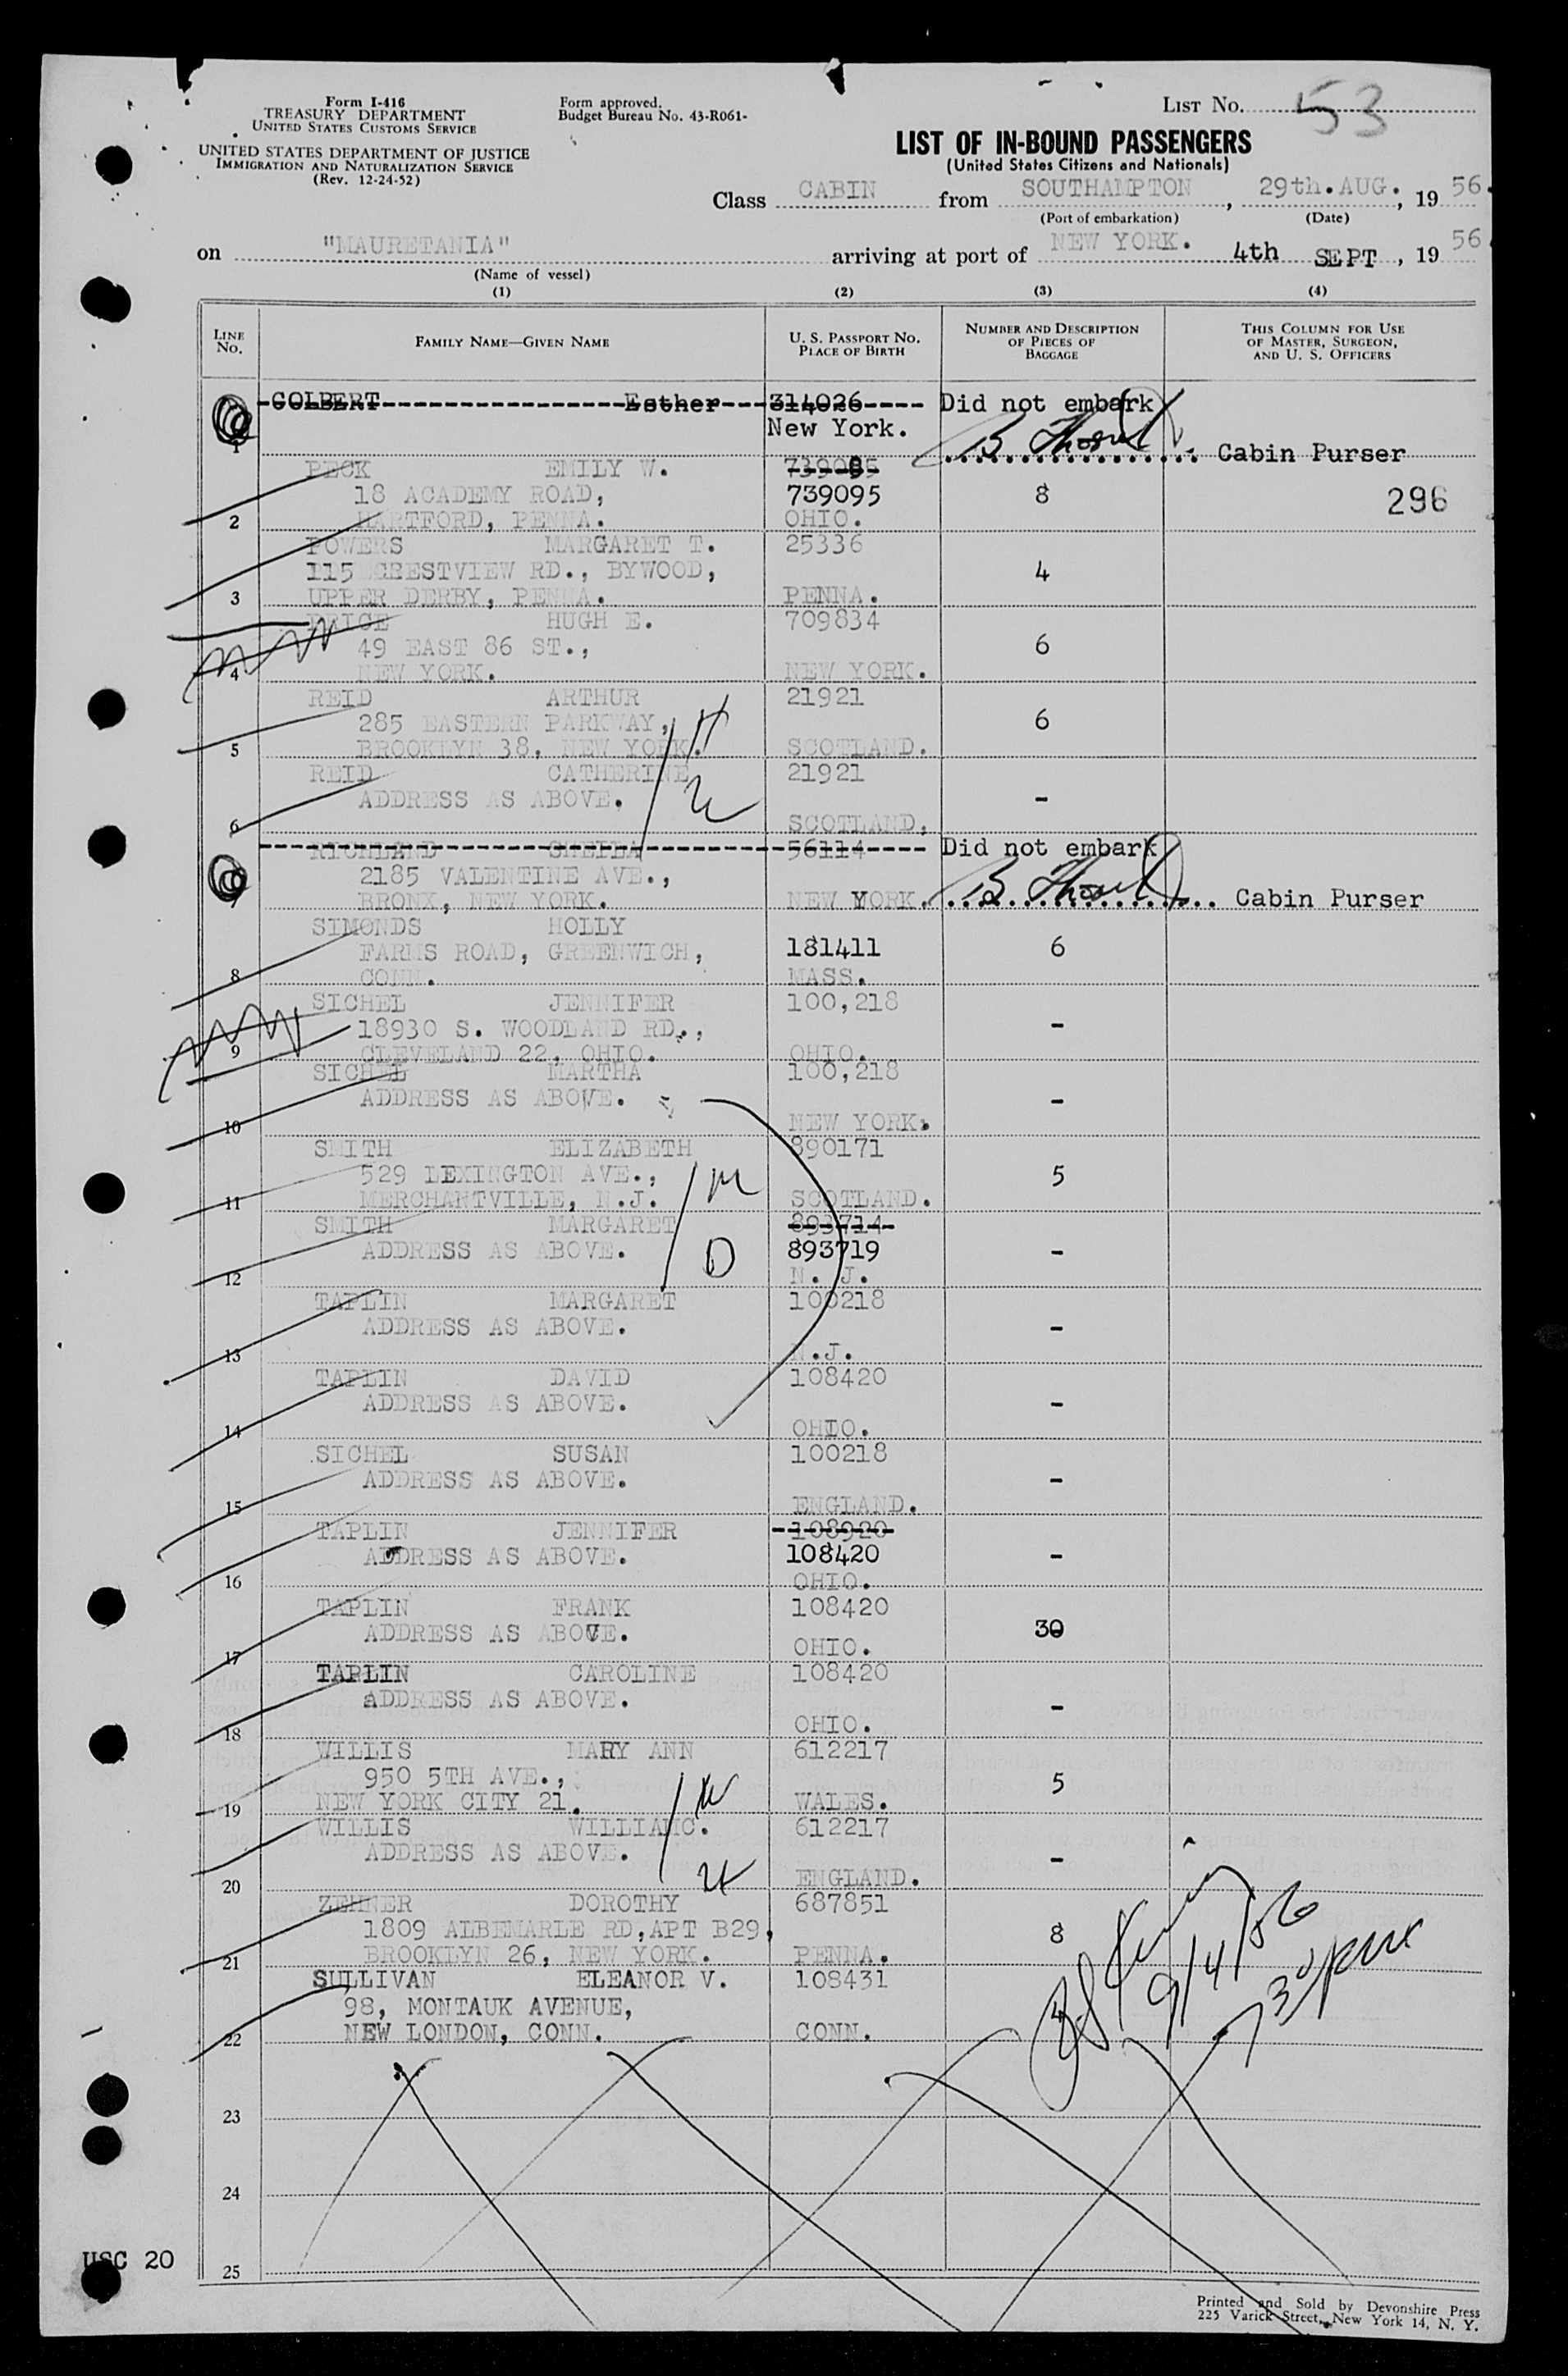 Form I-416
TREASURY DEPARTMENT
UNITED STATES CUSTOMS SERVICE
UNITED STATES DEPARTMENT OF JUSTICE
IMMIGRATION AND NATURALIZATION SERVICE
(Rev. 12-24-52)
Form approved.
Budget Bureau No. 43-R061-
LIST No. 53
LIST OF IN-BOUND PASSENGERS
(United States Citizens and Nationals)
Class CABIN from SOUTHAMPTON, 29th.AUG., 1956.
(Port of embarkation) (Date)
on "MAURETANIA" arriving at port of NEW YORK. 4th SEPT, 1956.
(Name of vessel)
(1) (2) (3) (4)
LINE No. FAMILY NAME—GIVEN NAME U. S. PASSPORT No. PLACE OF BIRTH NUMBER AND DESCRIPTION OF PIECES OF BAGGAGE THIS COLUMN FOR USE OF MASTER, SURGEON, AND U. S. OFFICERS
GOLBERT Esther 314026 Did not embark
New York.
1 Cabin Purser
PECK EMILY W.
18 ACADEMY ROAD, 739095 8 296
2 HARTFORD, PENNA. OHIO.
POWERS MARGARET T. 25336
115 CRESTVIEW RD., BYWOOD, 4
3 UPPER DERBY, PENNA. PENNA.
HUGH E. 709834
49 EAST 86 ST., 6
4 NEW YORK. NEW YORK.
REID ARTHUR 21921
285 EASTERN PARKWAY, 6
5 BROOKLYN 38, NEW YORK. SCOTLAND.
REID CATHERINE 21921
ADDRESS AS ABOVE. -
6 SCOTLAND.
RICHLAND SHEILA 56114 Did not embark
2185 VALENTINE AVE.,
7 BRONX, NEW YORK. NEW YORK. Cabin Purser
SIMONDS HOLLY
FARMS ROAD, GREENWICH, 181411 6
8 CONN. MASS.
SICHEL JENNIFER 100,218
18930 S. WOODLAND RD., -
9 CLEVELAND 22, OHIO. OHIO.
SICHEL MARTHA 100,218
ADDRESS AS ABOVE. -
10 NEW YORK.
SMITH ELIZABETH 890171
529 LEXINGTON AVE., 5
11 MERCHANTVILLE, N.J. SCOTLAND.
SMITH MARGARET 893714
ADDRESS AS ABOVE. 893719 -
12 N. J.
TAPLIN MARGARET 100218
ADDRESS AS ABOVE. -
13 N.J.
TAPLIN DAVID 108420
ADDRESS AS ABOVE. -
14 OHIO.
SICHEL SUSAN 100218
ADDRESS AS ABOVE. -
15 ENGLAND.
TAPLIN JENNIFER 108920
ADDRESS AS ABOVE. 108420 -
16 OHIO.
TAPLIN FRANK 108420
ADDRESS AS ABOVE. 30
17 OHIO.
TAPLIN CAROLINE 108420
aDDRESS AS ABOVE. -
18 OHIO.
WILLIS MARY ANN 612217
950 5TH AVE., 5
19 NEW YORK CITY 21. WALES.
WILLIS WILLIAMC. 612217
ADDRESS AS ABOVE. -
20 ENGLAND.
ZEHNER DOROTHY 687851
1809 ALBEMARLE RD,APT B29, 8
21 BROOKLYN 26, NEW YORK. PENNA.
SULLIVAN ELEANOR V. 108431
98, MONTAUK AVENUE,
22 NEW LONDON, CONN. CONN.
9/4/56
730pm
23
24
25
USC 20
Printed and Sold by Devonshire Press
225 Varick Street, New York 14, N. Y.